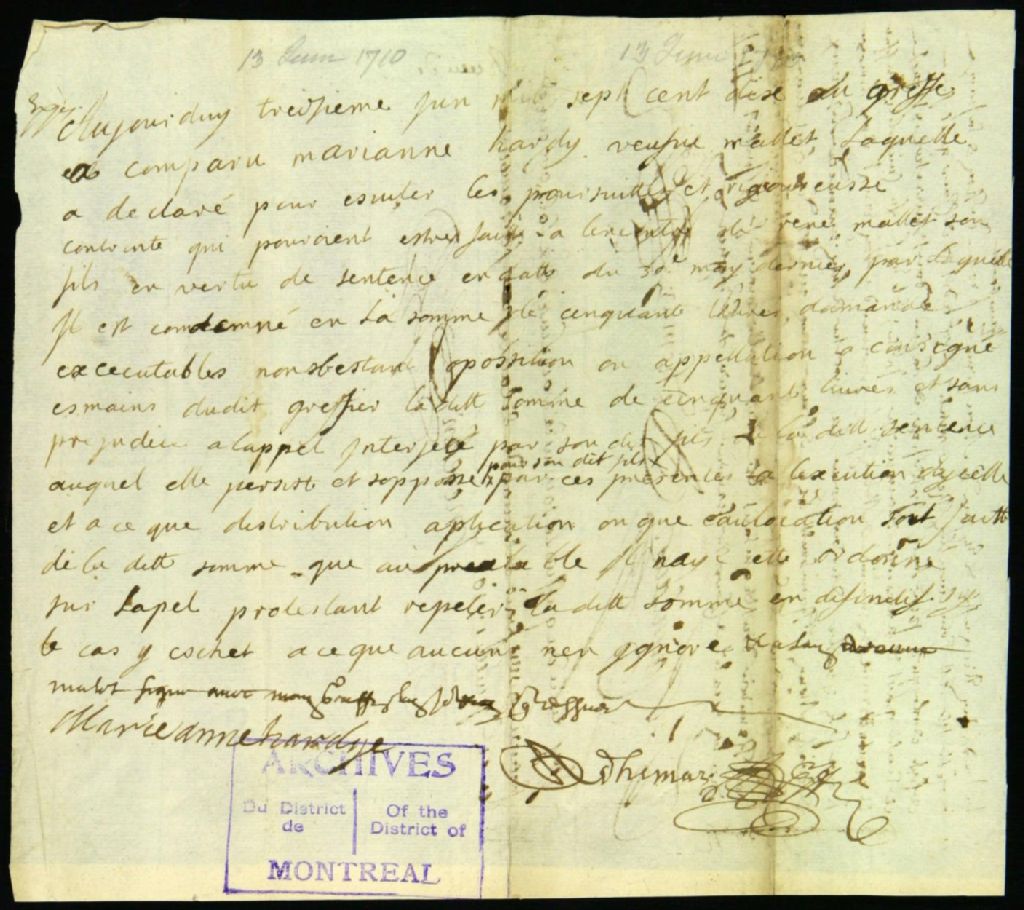 13 Juin 1710 13 Juin
Aujourduy treisieme Jun mil sept cent dixe au greffe
a comparu marianne hardy veufue mallet Laquelle
a declaré pour esuiter les poursuittes et rigoureusse
contrinte qui pouroient estre faitte a lencontre de rene mallet son
fils en vertu de sentence en datte du 30e may dernier par Laquelle
Il est condemné en La somme de cinquante liures
excecutables nonobestant oposition ou appellation a consigné
esmains dudit greffier laditte somme de cinquante liures et sans
prejudice a lappel Interjeté par son dit fils de la ditte sentence
pour son dit fils
auquel elle persiste et soppose par ces presences a Lexecution dycelle
et a ce que distribution aplication ou que soit faitte
de la ditte somme que au preallable Il naye esté ordonné
sur Lapel protestant repeter La ditte somme en definitif
le cas y eschet a ce que aucun nen Ignore
Marieannehardye
dhemar
ARCHIVES
Du District de
Of the District of
MONTREAL